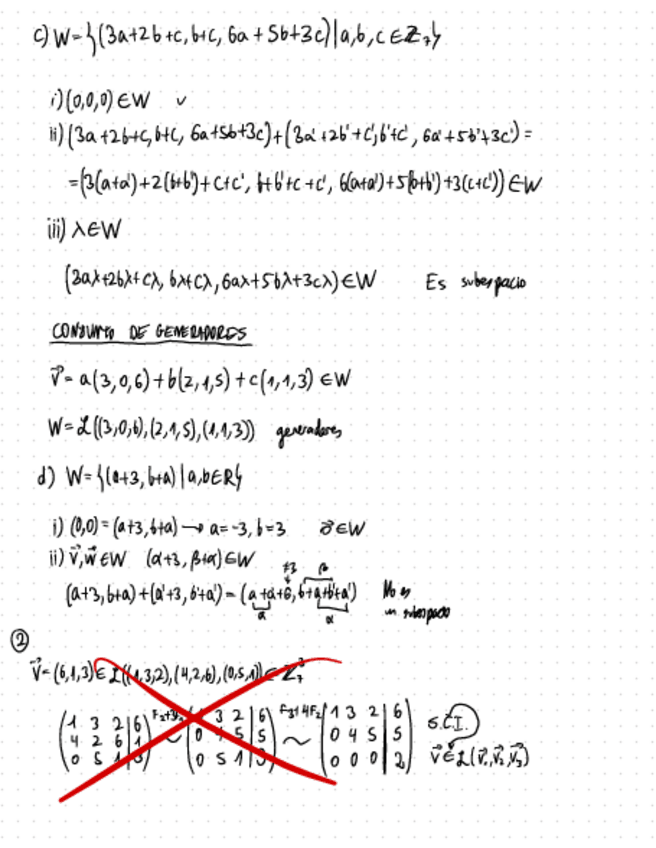 c) W={(3a+2b+c, b+c, 6a+5b+3c) | a,b,c ∈ Z₇}
i) (0,0,0) ∈ W ✓
ii) (3a+2b+c, b+c, 6a+5b+3c)+(3a'+2b'+c', b'+c', 6a'+5b'+3c') =
=(3(a+a')+2(b+b')+c+c', b+b'+c+c', 6(a+a')+5(b+b')+3(c+c')) ∈ W
iii) λ∈W
(3aλ+2bλ+cλ, bλ+cλ, 6aλ+5bλ+3cλ) ∈ W Es subespacio
CONJUNTO DE GENERADORES
v⃗= a(3,0,6)+b(2,1,5)+c(1,1,3) ∈ W
W=L((3,0,6),(2,1,5),(1,1,3)) generadores
d) W={(a+3, b+a) | a,b∈R}
i) (0,0) = (a+3, b+a) → a=-3, b=3 0⃗∈W
ii) v⃗,w⃗ ∈W (α+3, β+α) ∈ W
≠3 β
(a+3, b+a)+(a'+3, b'+a') = (a+a'+6, b+a+b'+a') No es
α α un subespacio
②
v⃗=(6,1,3) ∈ L((1,3,2),(4,2,6),(0,5,1)) ∈ Z₇³
(1 3 2 | 6) (1 3 2 | 6) F₃+4F₂ (1 3 2 | 6) S.C.I.
(4 2 6 | 1) ~ (0 4 5 | 5) ~ (0 4 5 | 5)
(0 5 1 | 3) (0 5 1 | 3) (0 0 0 | 2) v⃗∈L(v⃗₁,v⃗₂,v⃗₃)